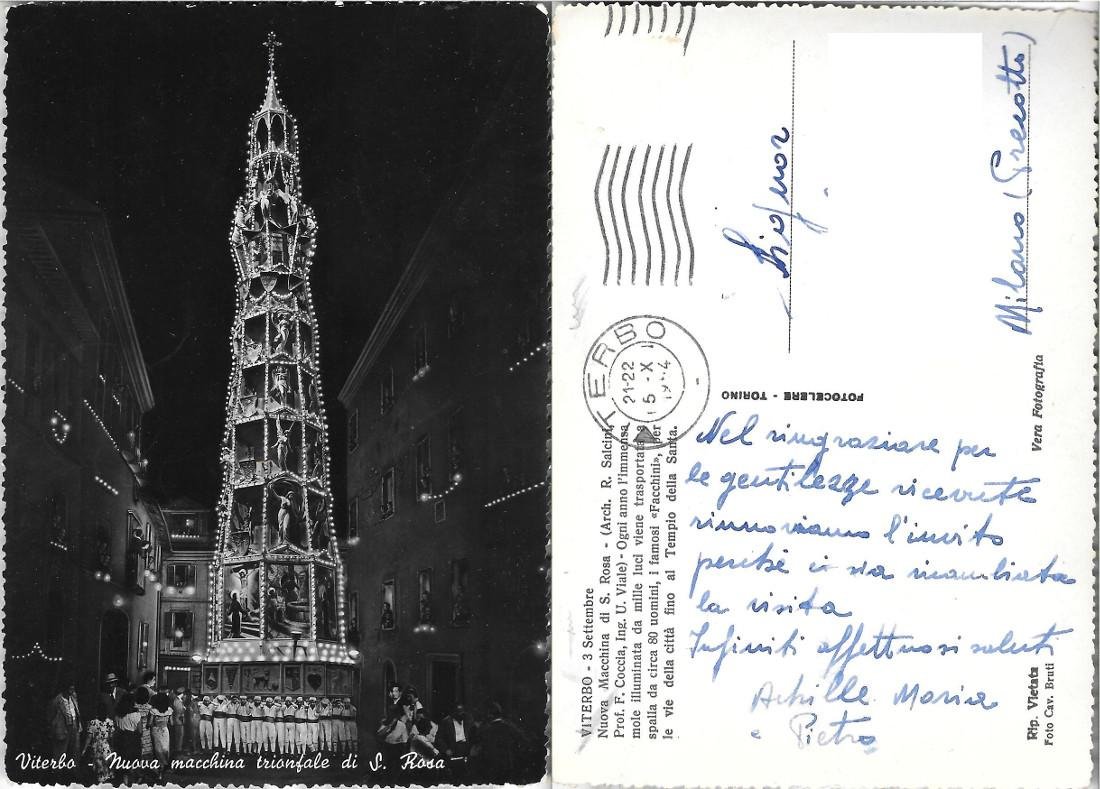 Viterbo - Nuova macchina trionfale di S. Rosa
VITERBO - 3 Settembre
Nuova Macchina di S. Rosa - (Arch. R. Salcini,
Prof. F. Coccia, Ing. U. Viale) - Ogni anno l'immensa
mole illuminata da mille luci viene trasportata a
spalla da circa 80 uomini, i famosi «Facchini», per
le vie della città fino al Tempio della Santa.
TERBO
21-22
5-X
FOTOCELERE - TORINO
Nel ringraziare per
le gentilezze ricevute
rinnoviamo l'invito
perchè ci sia ricambiata
la visita
Infiniti affettuosi saluti
Achille Maria
e Pietro
Signor
Milano (Precotto)
Rip. Vietata
Foto Cav. Bruti
Vera Fotografia